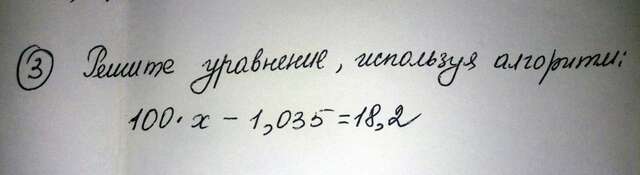 3 Решите уравнение, используя алгоритм:
100·x - 1,035 = 18,2